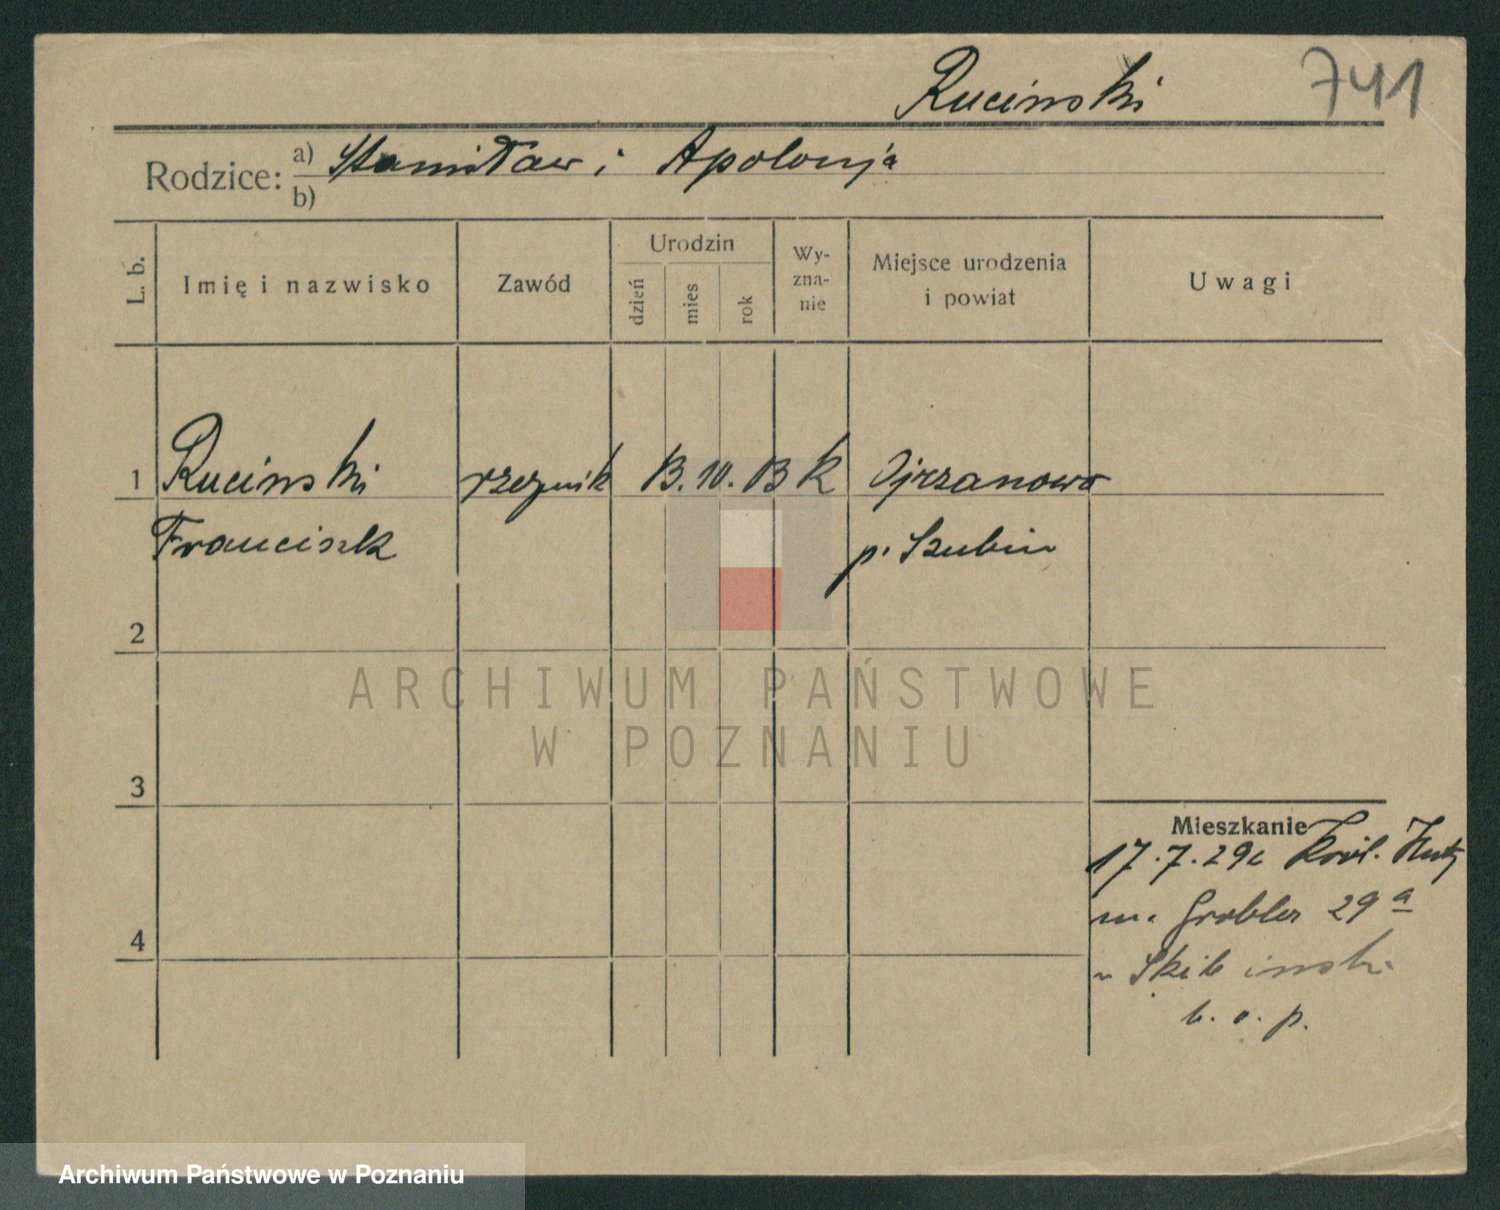 Rucinski 741
Rodzice: a) Stanisław i Apolonja
b)
L. b. Imię i nazwisko Zawód Urodzin dzień mies rok Wy-zna-nie Miejsce urodzenia i powiat Uwagi
1 Rucinski rzeznik 13. 10. 03 k Ojrzanowo
Franciszk p. Szubin
2
ARCHIWUM PAŃSTWOWE
W POZNANIU
3
Mieszkanie
17. 7. 29 z Król. Huty
Grobla 29a
b. o. p.
4
Archiwum Państwowe w Poznaniu